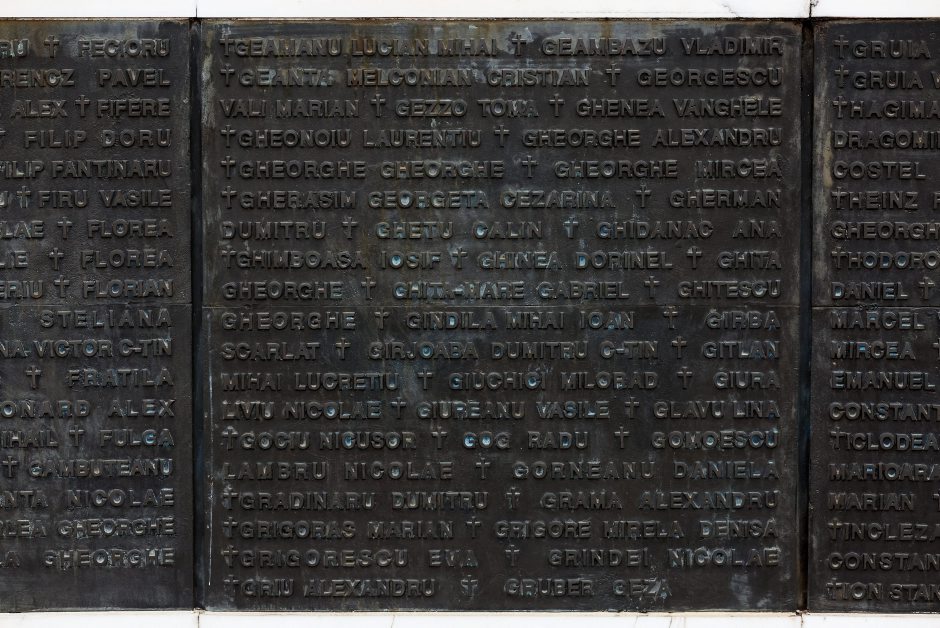 RU ✝ FECIORU
RENCZ PAVEL
ALEX ✝ FIFERE
✝ FILIP DORU
FILIP FANTINARU
✝ FIRU VASILE
✝ FLOREA
✝ FLOREA
✝ FLORIAN
STELIANA
VICTOR C-TIN
✝ FRATILA
ALEX
✝ FULGA
✝ GAMBUTEANU
NICOLAE
GHEORGHE
GHEORGHE
✝GEAMANU LUCIAN MIHAI ✝ GEAMBAZU VLADIMIR
✝GEANTA MELCONIAN CRISTIAN ✝ GEORGESCU
VALI MARIAN ✝ GEZZO TOMA ✝ GHENEA VANGHELE
✝GHEONOIU LAURENTIU ✝ GHEORGHE ALEXANDRU
✝GHEORGHE GHEORGHE ✝ GHEORGHE MIRCEA
✝GHERASIM GEORGETA CEZARINA ✝ GHERMAN
DUMITRU ✝ GHETU CALIN ✝ GHIDANAC ANA
✝GHIMBOASA IOSIF ✝ GHINEA DORINEL ✝ GHITA
GHEORGHE ✝ GHITA-MARE GABRIEL ✝ GHITESCU
GHEORGHE ✝ GINDILA MIHAI IOAN ✝ GIRBA
SCARLAT ✝ GIRJOABA DUMITRU C-TIN ✝ GITLAN
MIHAI LUCRETIU ✝ GIUCHICI MILORAD ✝ GIURA
LIVIU NICOLAE ✝ GIUREANU VASILE ✝ GLAVU LINA
✝GOCIU NICUSOR ✝ GOG RADU ✝ GOMOESCU
LAMBRU NICOLAE ✝ GORNEANU DANIELA
✝GRADINARU DUMITRU ✝ GRAMA ALEXANDRU
✝GRIGORAS MARIAN ✝ GRIGORE MIRELA DENISA
✝GRIGORESCU EVA ✝ GRINDEI NICOLAE
✝GRIU ALEXANDRU ✝ GRUBER GEZA
✝GRUIA
✝GRUIA
✝HAGIMA
DRAGOMIR
COSTEL
✝HEINZ
GHEORGHE
✝HODORO
DANIEL ✝
MARCEL
MIRCEA ✝
EMANUEL
CONSTANT
✝ICLODEA
MARIOARA
MARIAN
✝INCLEZA
CONSTAN
✝ION STAN